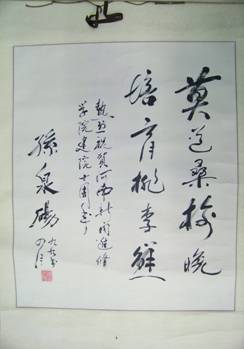 莫道桑榆晚
培育桃李鲜
热烈祝贺河南科技进修
学院建院十周年
孫泉砀